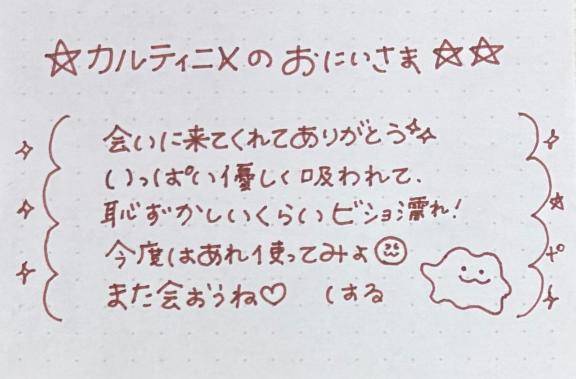 ☆カルティニXのおにいさま☆☆
会いに来てくれてありがとう
いっぱい優しく吸われて、
恥ずかしいくらいビショ濡れ!
今度はあれ使ってみよ
また会おうね♡ しする